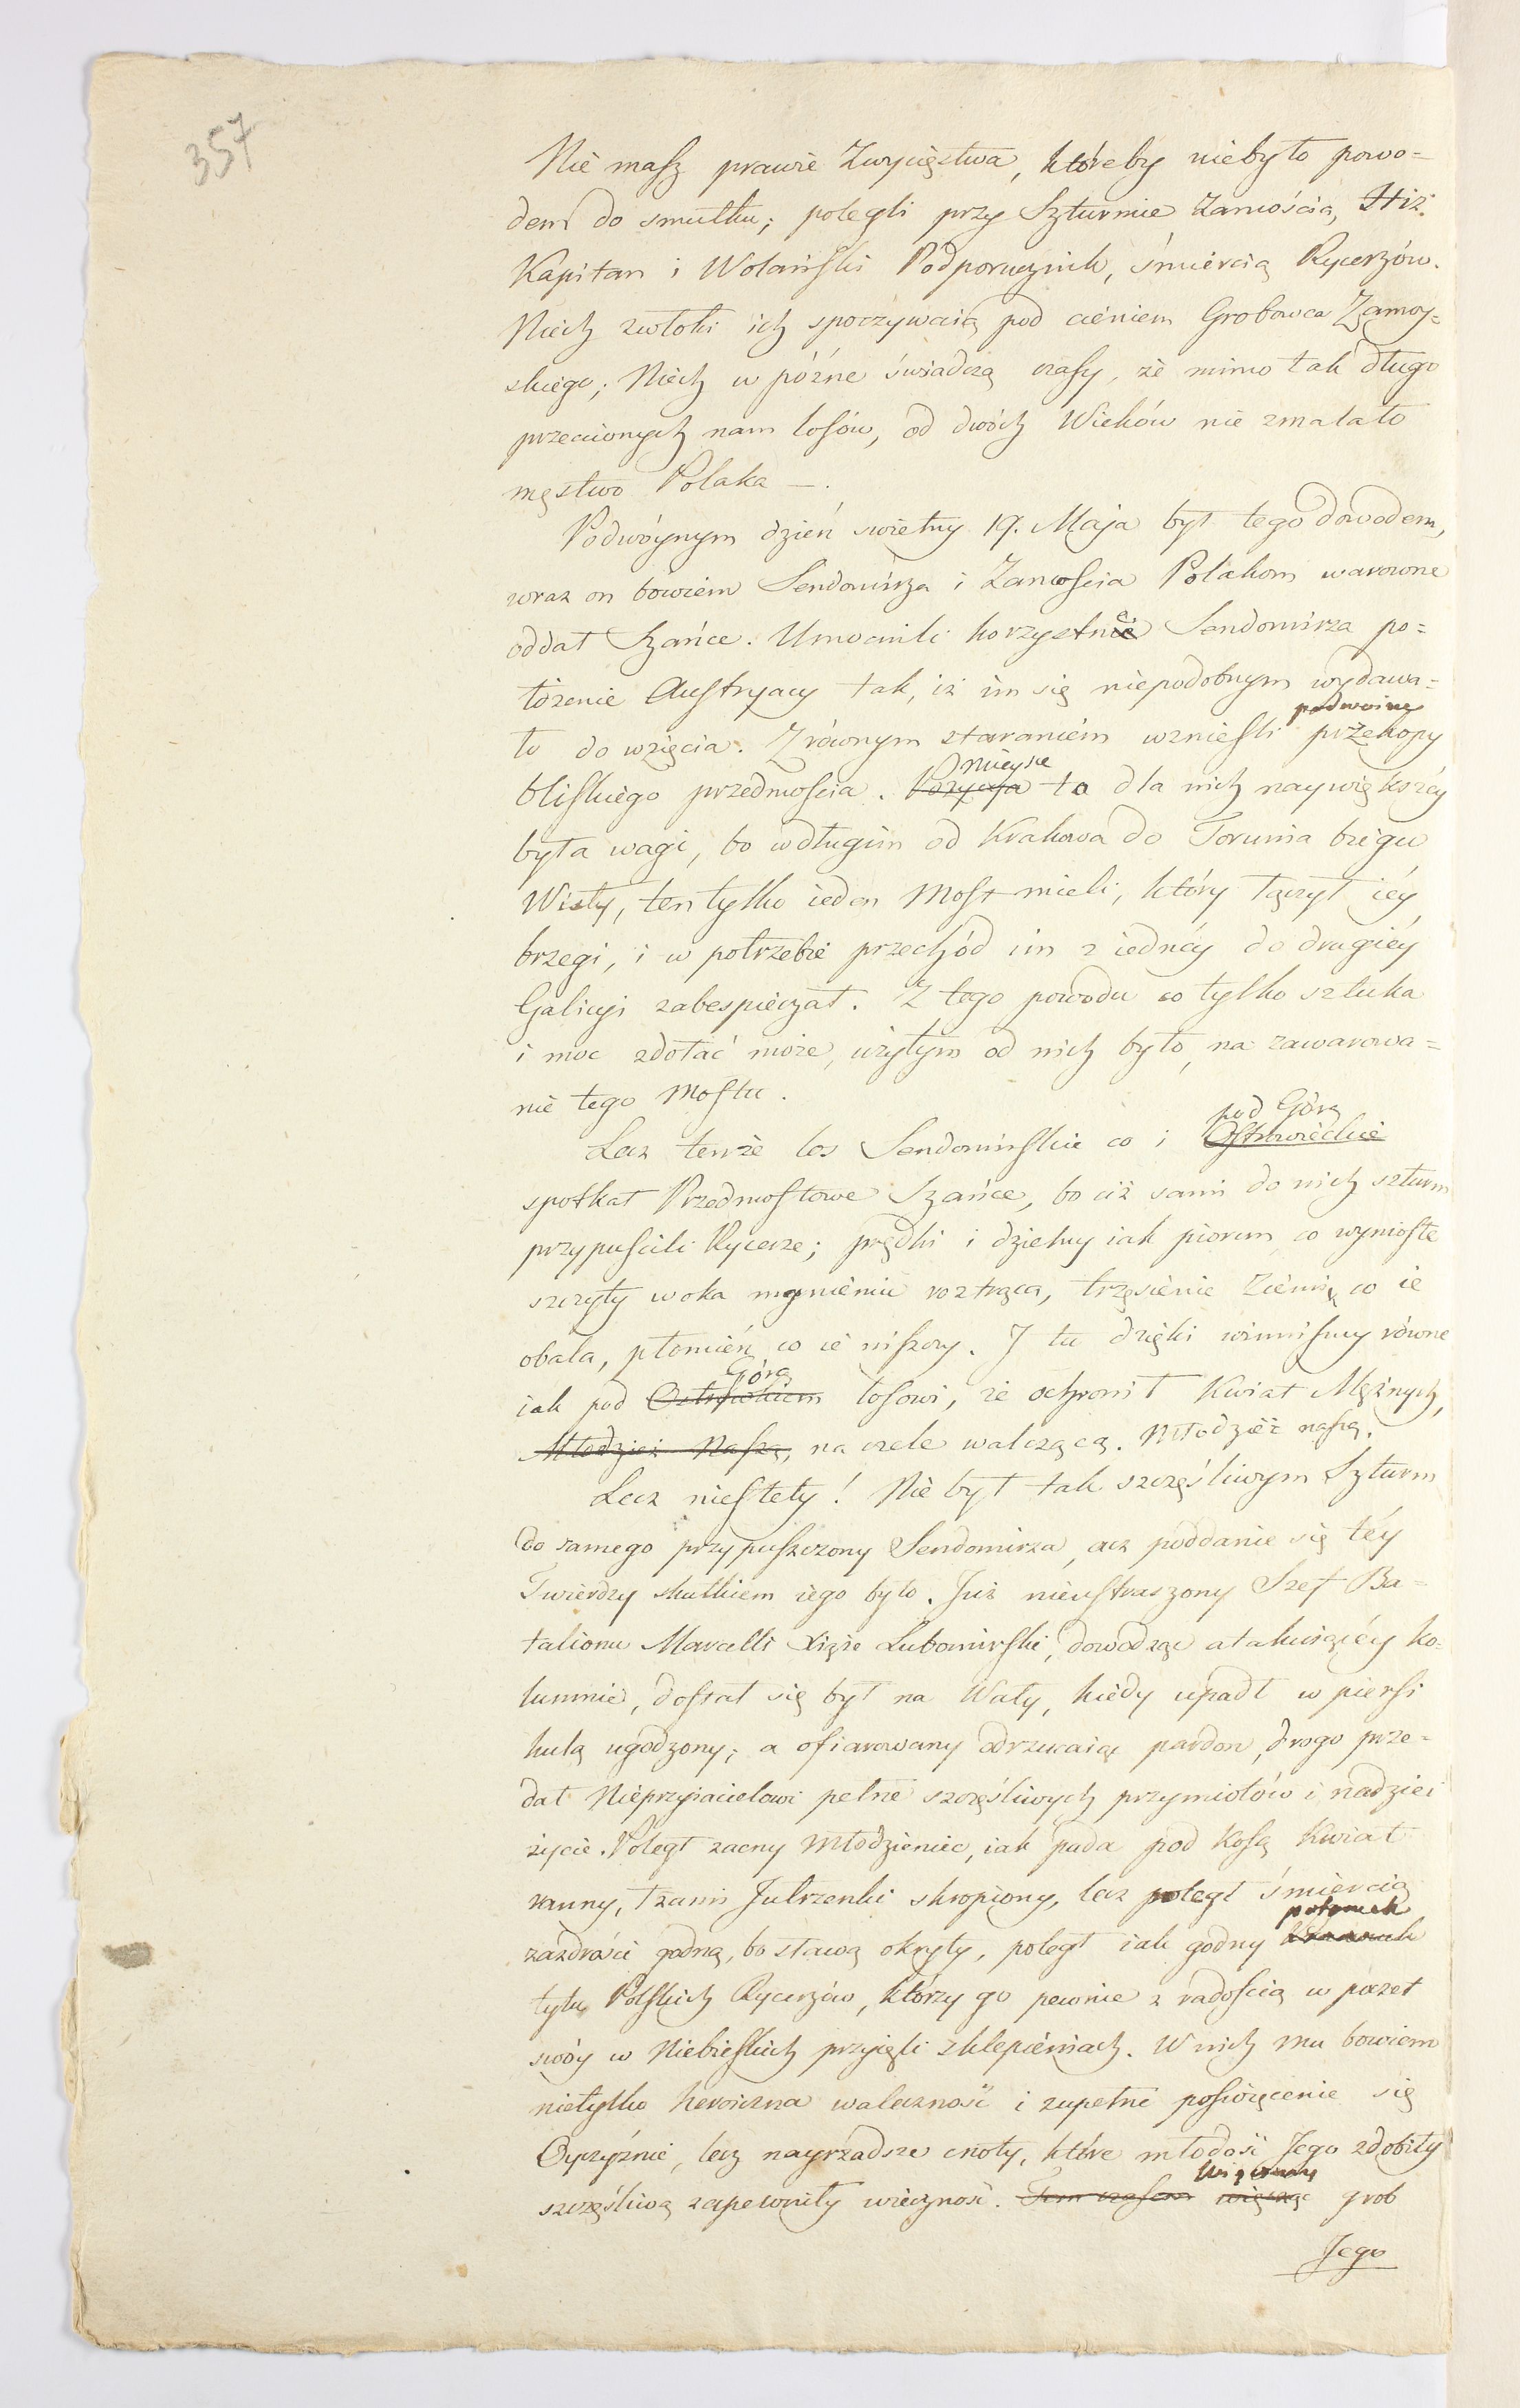 357
Nie masz prawie Zwycięstwa, któreby niebyło powo=
dem do smutku; polegli przy Szturmie Zamościa, Hiż.
Kapitan i Wolański Podporucznik, śmiercią Rycerzów.
Niech zwłoki ich spoczywaią pod cieniem Grobowca Zamoy=
skiego; Niech w późne świadczą czasy, że mimo tak długo
przeciwnych nam losów, od dwóch Wieków nie zmalało
męstwo Polaka —.
Podwóynym dzień świetny 19. Maja był tego dowodem,
wraz on bowiem Sendomirza i Zamościa Polakom warowne
oddał Szańce. Umocnili korzystne Sendomirza po=
łożenie Austryacy tak, iż im się niepodobnym wydawa=
podwoine
ło do wzięcia. Z równym staraniem wznieśli przekopy
mieysce
bliskiego przedmościa. Pozycya to dla nich naywiększéy
była wagi, bo w długim od Krakowa do Torunia biegu
Wisły, ten tylko ieden Most mieli, który łączył iéy
brzegi, i w potrzebie przechód im z iednéy do drugiéy
Galicyi zabespieczał. Z tego powodu co tylko sztuka
i moc zdołać może, użytym od nich było, na zawarowa=
nie tego Mostu.
pod Górą
Lecz tenże los Sendomirskie co i Ostrowieckie
spotkał Przedmostowe Szańce, bo ciż sami do nich szturm
przypuścili Rycerze; prędki i dzielny iak piorun co wyniosłe
szczyty w oka mgnieniu roztrąca, trzęsienie Ziemi, co ie
obala, płomień co ie niszczy. I tu dzięki winniśmy równe
Górą
iak pod Ostrówkiem losowi, że ochronił Kwiat Mężnych,
Młodzież Naszą, na czele walczącą. Młodzież naszą.
Lecz niestety! Nie był tak szczęśliwym Szturm
do samego przypuszczony Sendomirza, acz poddanie się téy
Twierdzy skutkiem iego było. Już nieustraszony Szef Ba=
talionu Marcelli Xiąże Lubomirski, dowodząc atakuiącéy ko=
lumnie, dostał się był na Wały, kiedy upadł w piersi
kulą ugodzony; a ofiarowany odrzucaiąc pardon, drogo prze=
dał Nieprzyiacielowi pełne szczęśliwych przymiotów i nadziei
życie. Poległ zacny Młodzieniec, iak pada pod Kosą Kwiat
ranny, łzami Jutrzenki skropiony, lecz poległ śmiercią
potomek
zazdrości godną, bo sławą okryty, poległ iak godny
tylu Polskich Rycerzów, którzy go pewnie z radością w poczet
swóy w Niebieskich przyięli sklepieniach. W nich mu bowiem
nietylko heroiczna waleczność i zupełne poświęcenie się
Oyczyźnie, lecz nayrzadsze cnoty, które młodość Jego zdobiły
Wieńczmy
szczęśliwą zapewniły wieczność. Tem czasem wieńcząc grob
Jego